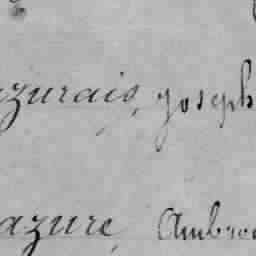 azurais, Joseph
azure, Ambro